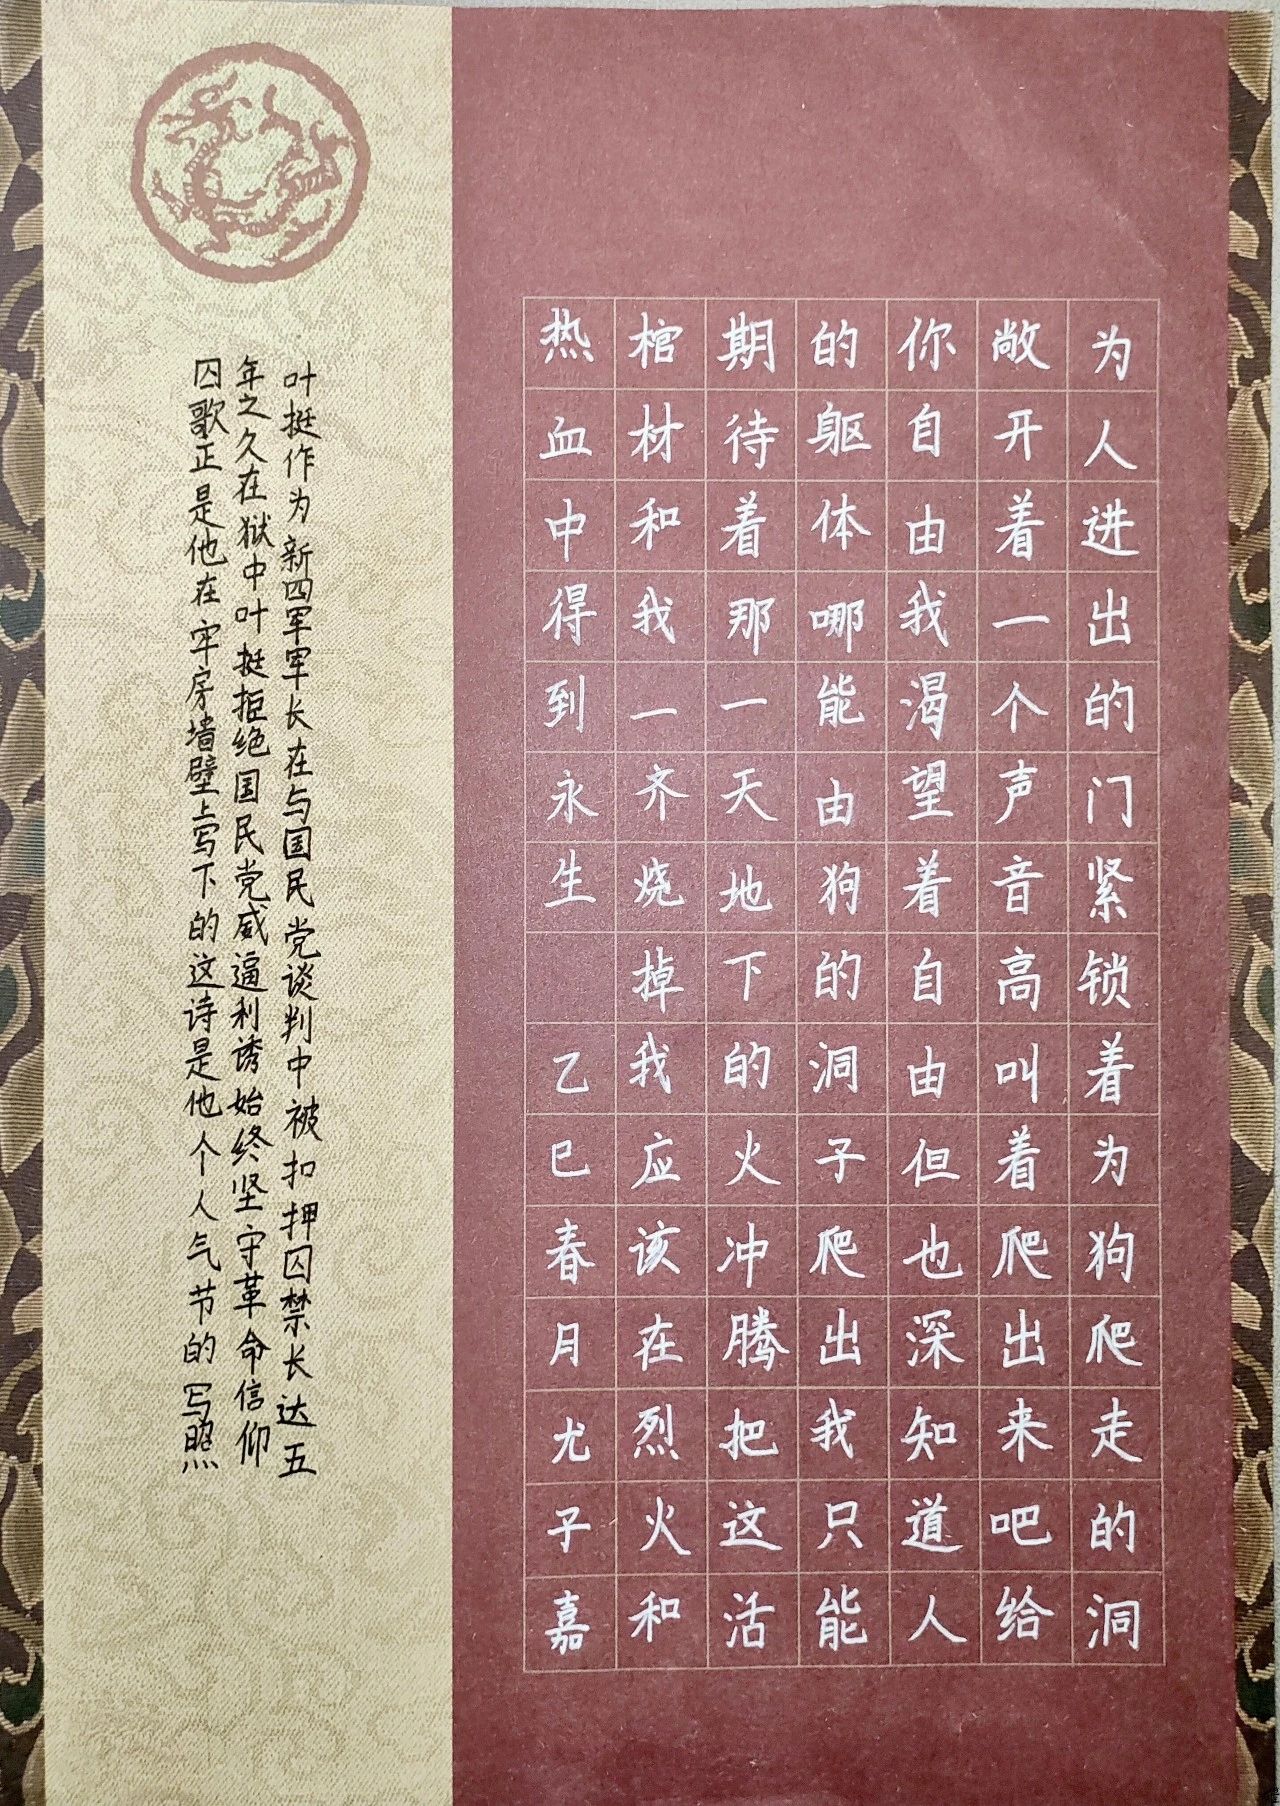 为人进出的门紧锁着为狗爬走的洞
敞开着一个声音高叫着爬出来吧给
你自由我渴望着自由但也深知道人
的躯体哪能由狗的洞子爬出我只能
期待着那一天地下的火冲腾把这活
棺材和我一齐烧掉我应该在烈火和
热血中得到永生 乙巳春月尤子嘉
叶挺作为新四军军长在与国民党谈判中被扣押囚禁长达五
年之久在狱中叶挺拒绝国民党威逼利诱始终坚守革命信仰
囚歌正是他在牢房墙壁上写下的这诗是他个人气节的写照